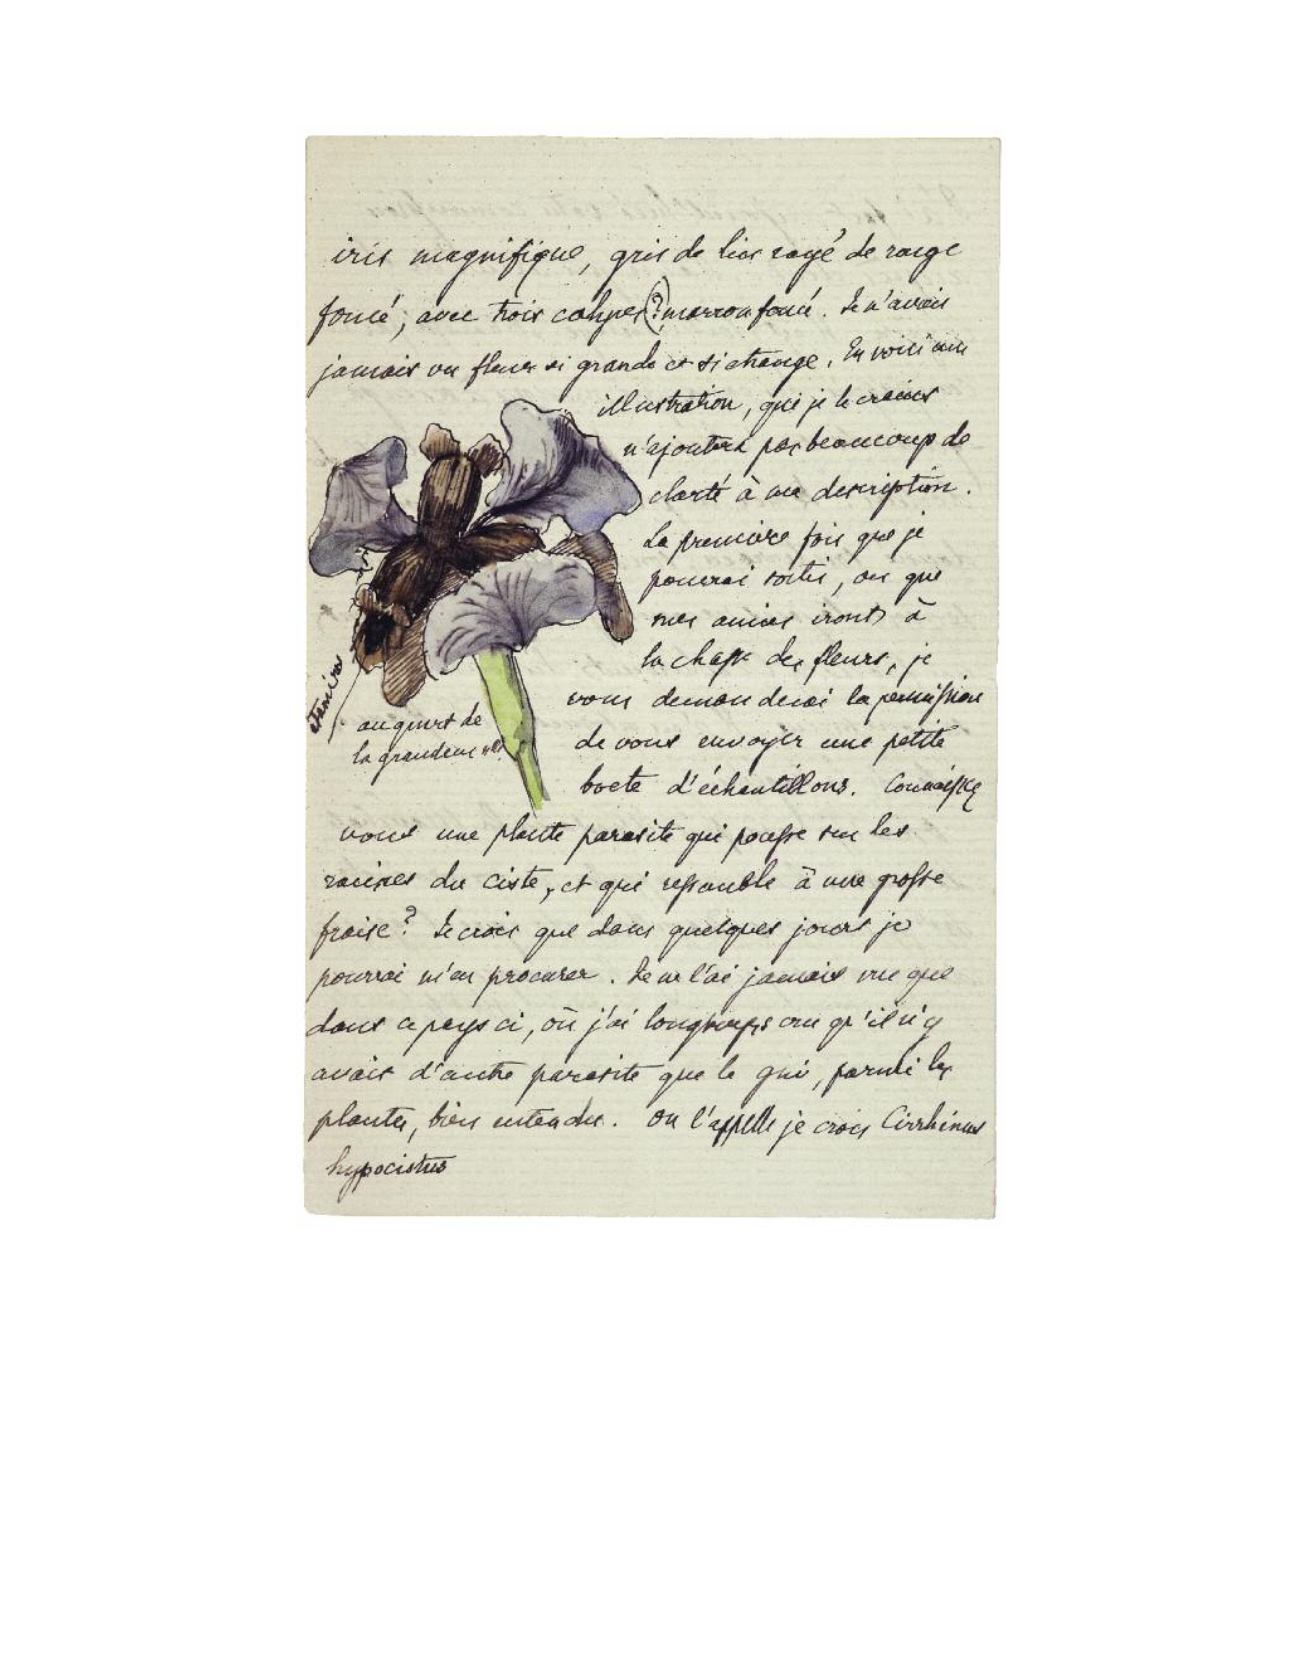 iris magnifique, gris de lias rayé de rouge
foncé, avec trois calyces(?) marron foncé. Je n'avais
jamais vu fleur si grande et si étrange. En voici une
illustration, qui je le crains
n'ajoutera pas beaucoup de
clarté à ma description.
La première fois que je
pourrai sortir, ou que
mes amies iront à
la chasse des fleurs, je
vous demanderai la permission
étamines
au quart de
la grandeur
de vous envoyer une petite
boete d'échantillons. Connaissez
vous une plante parasite qui pousse sur les
racines du ciste, et qui ressemble à une grosse
fraise? Je crois que dans quelques jours je
pourrai m'en procurer. Je ne l'ai jamais vue que
dans ce pays ci, où j'ai longtemps cru qu'il n'y
avait d'autre parasite que le gui, parmi les
plantes, bien entendu. On l'appelle je crois Cirrhinus
hypocistus